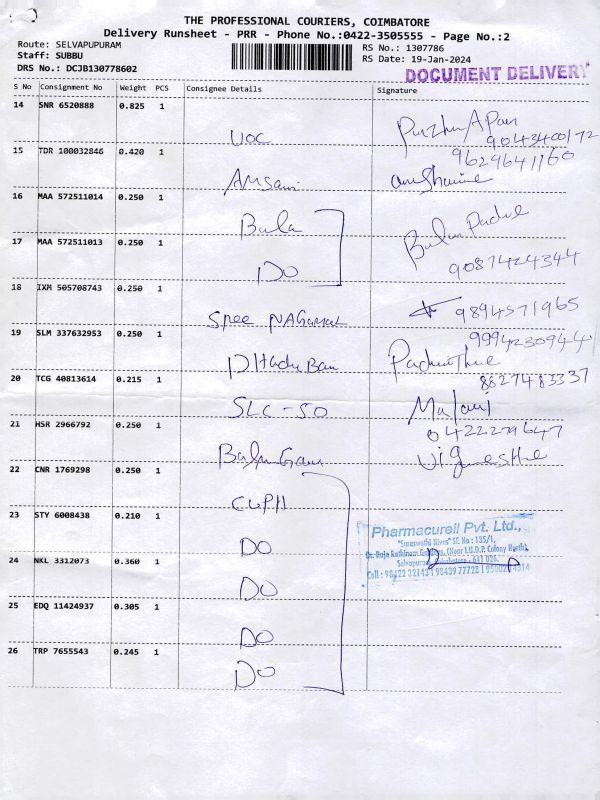 THE PROFESSIONAL COURIERS, COIMBATORE
Delivery Runsheet - PRR - Phone No.:0422-3505555 - Page No.:2
Route: SELVAPUPURAM
Staff: SUBBU
DRS No.: DCJB130778602
RS No.: 1307786
RS Date: 19-Jan-2024
DOCUMENT DELIVERY
S No Consignment No Weight PCS Consignee Details Signature
14 SNR 6520888 0.825 1
UOC
9043400172
15 TDR 100032846 0.420 1
9629641160
16 MAA 572511014 0.250 1
Bala
17 MAA 572511013 0.250 1
DO
9087424344
18 IXM 505708743 0.250 1
9894571965
19 SLM 337632953 0.250 1
9994230944
20 TCG 40813614 0.215 1
8827483337
SLC-50
Malani
21 HSR 2966792 0.250 1
04222279647
22 CNR 1769298 0.250 1
CLPH
23 STY 6008438 0.210 1
DO
24 NKL 3312073 0.360 1
DO
25 EDQ 11424937 0.305 1
DO
26 TRP 7655543 0.245 1
DO
Pharmacurell Pvt. Ltd.,
"Saraswathi Nivas" SF. No : 135/1,
Dr. Raja Rathinam Gardens, (Near I.U.D.P. Colony North),
Selvapuram, Coimbatore - 641 026.
Cell : 98422 32143 | 98439 77728 |